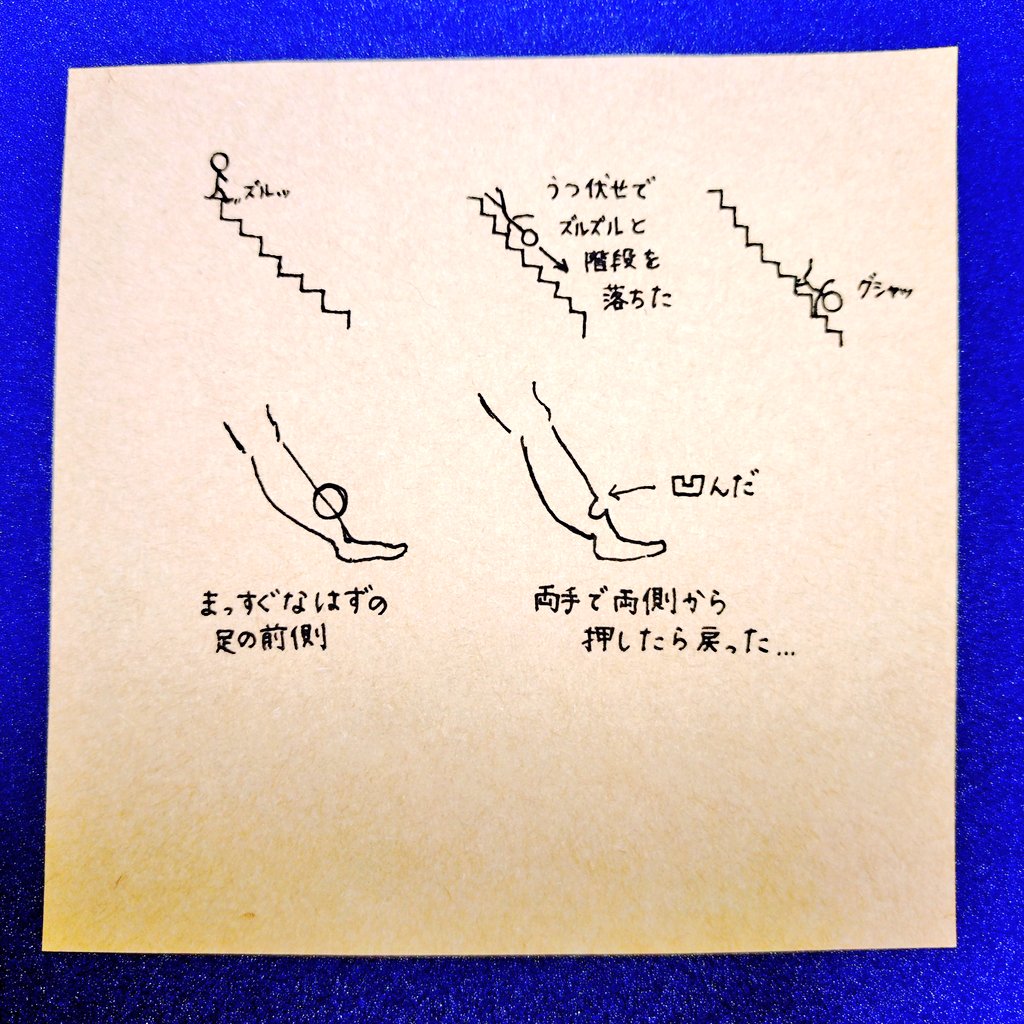 ズルッ
うつ伏せで
ズルズルと
階段を
落ちた
グシャッ
凹んだ
まっすぐなはずの
足の前側
両手で両側から
押したら戻った…